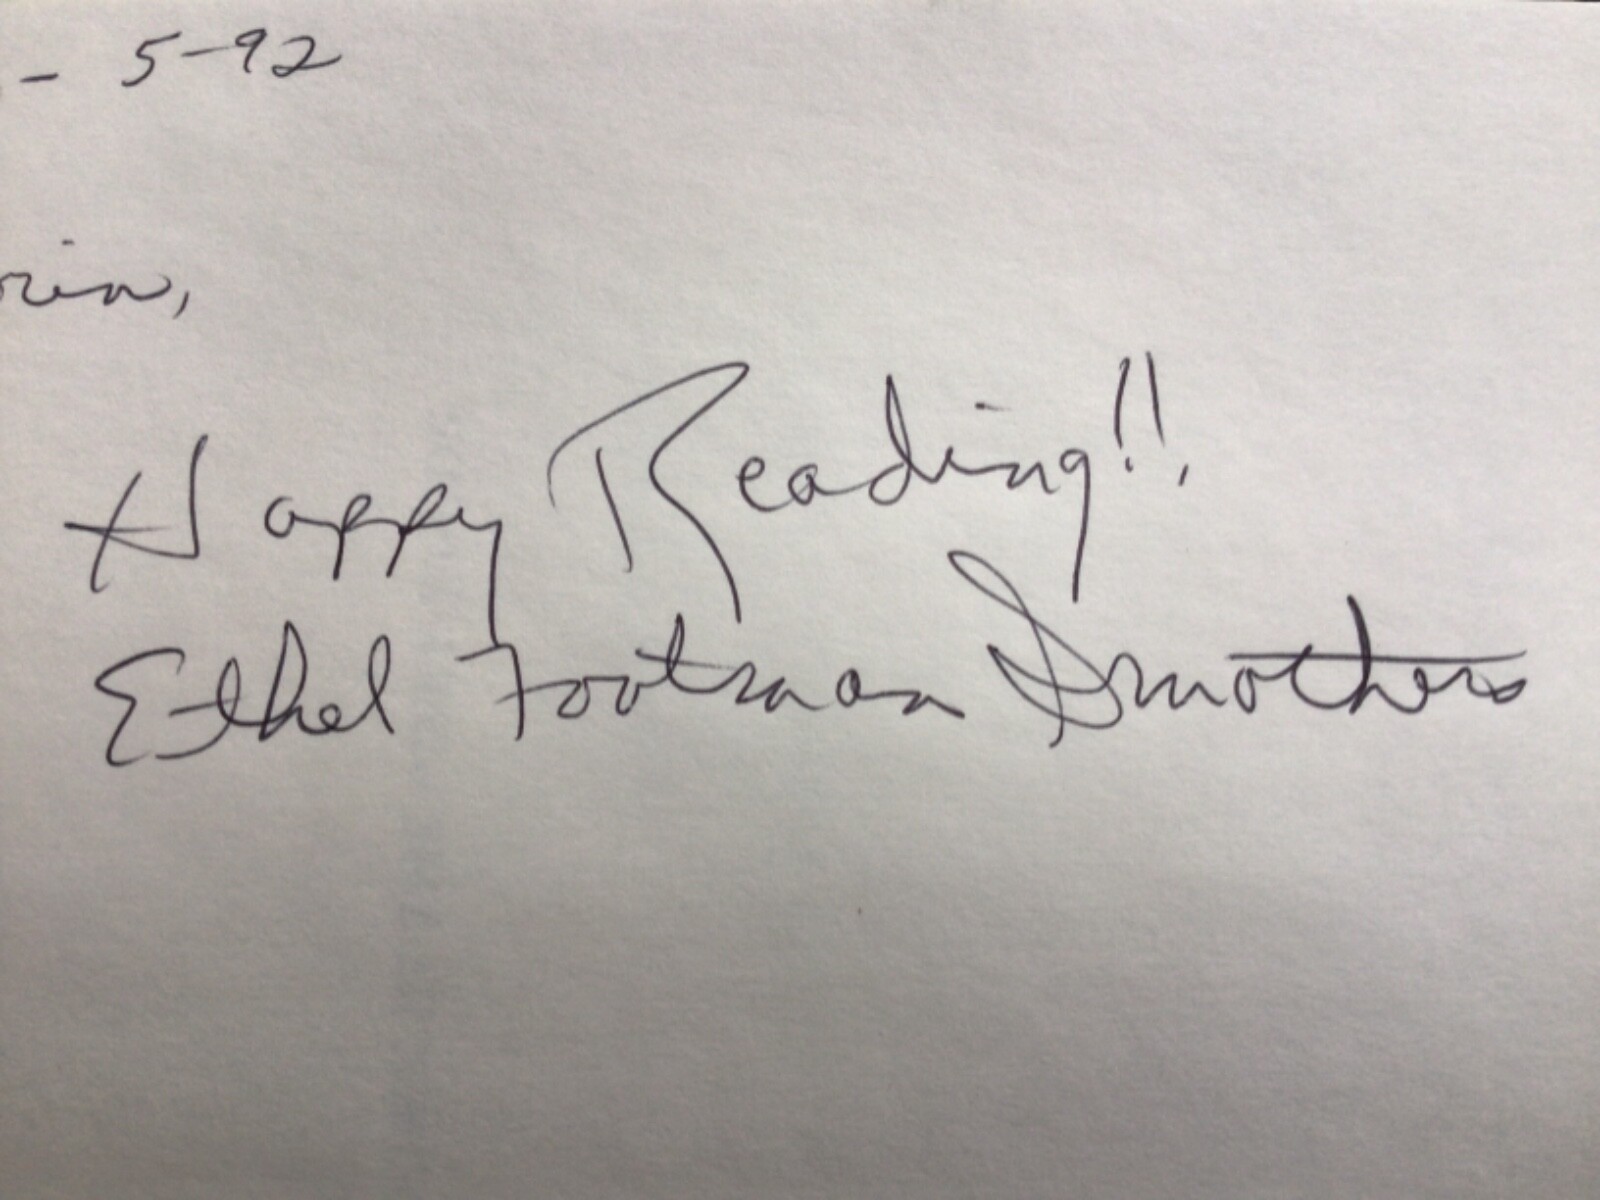 - 5-92
Happy Reading!!
Ethel Footman Smothers